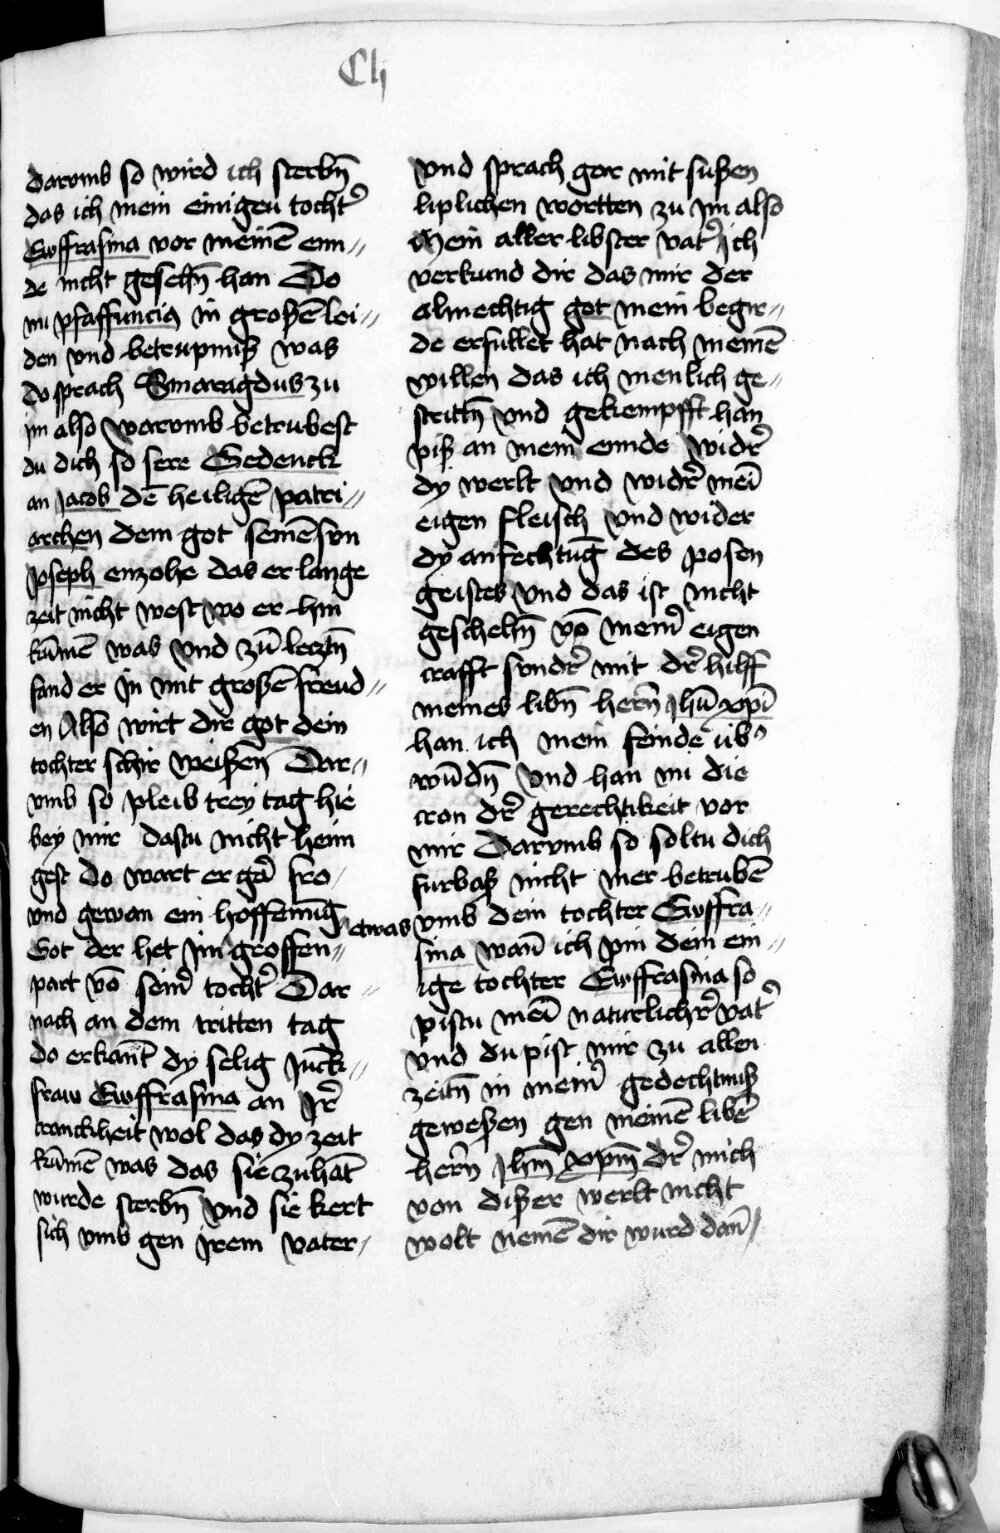 Clj
darvmb so wird ich sterbn̄
das ich mein einigen tocht᷑
Ewffrasina vor meinē enn//
de nicht gesehn̄ han Do
nu pfaffuncia in großē lei//
den vnd betrupniß was
do sprach Smaragdus zu
im also warvmb betrubest
du dich so sere Gedenck
an Jacob dē heiligē patri//
archen dem got seinē svn
Joseph enzohe das er lange
zeit nicht west wo er hin
kūmē was vnd zū leczn̄
fand er in mit großē freud//
en Also wirt dir got dein
tochter schir weißen Dar//
vmb so pleib trey tag hie
bey mir dastu nicht heim
gest do wart er gar fro/
vnd gewan ein hoffenūg
Got der het im grossen// etwas
part vō sein᷑ tocht᷑ Dar//
nach an dem tritten tag
do erkant̄ dy selig Juck//
fraw Ewffrasina an ir᷑
kranckheit wol das dy zeit
kūmē was das sie zuhāt
wurde sterbn̄ vnd sie kert
sich vmb gen irem vater/
vnd sprach gar mit sußen
liplichen wortten zu im also
Mein aller libster vat᷑ ich
verkund dir das mir der
almechtig got mein begir//
de erfullet hat nach meinē
willen das ich menlich ge//
stritn̄ vnd gekempfft han
piß an mein ennde widr᷑
dy werlt vnd widr᷑ mei̅
eigen fleisch vnd wider
dy anfechtūg des posen
geistes vnd das ist nicht
geschehn̄ vō mein᷑ eigen
crafft sundr᷑ mit dr᷑ hilff
meines libn̄ hern̄ jhū xp̄i
han ich mein feinde ub᷑
wūdn̄ vnd han nu die
cron dr᷑ gerechtikeit vor
mir Darvmb so soltu dich
furbaß nicht mer betrubē
vmb dein tochter Ewffra//
sina wan̄ ich pin dein ein//
ige tochter Ewffrasina so
pistu mei̅ naturlichr᷑ vat᷑
vnd du pist mir zu allen
zeitn̄ in mein᷑ gedechtniß
geweßen gen meinē libē
hern̄ jhm̄ xpm̄ dr᷑ mich
von dißer werlt nicht
wolt nemē dir wurd dan̄/